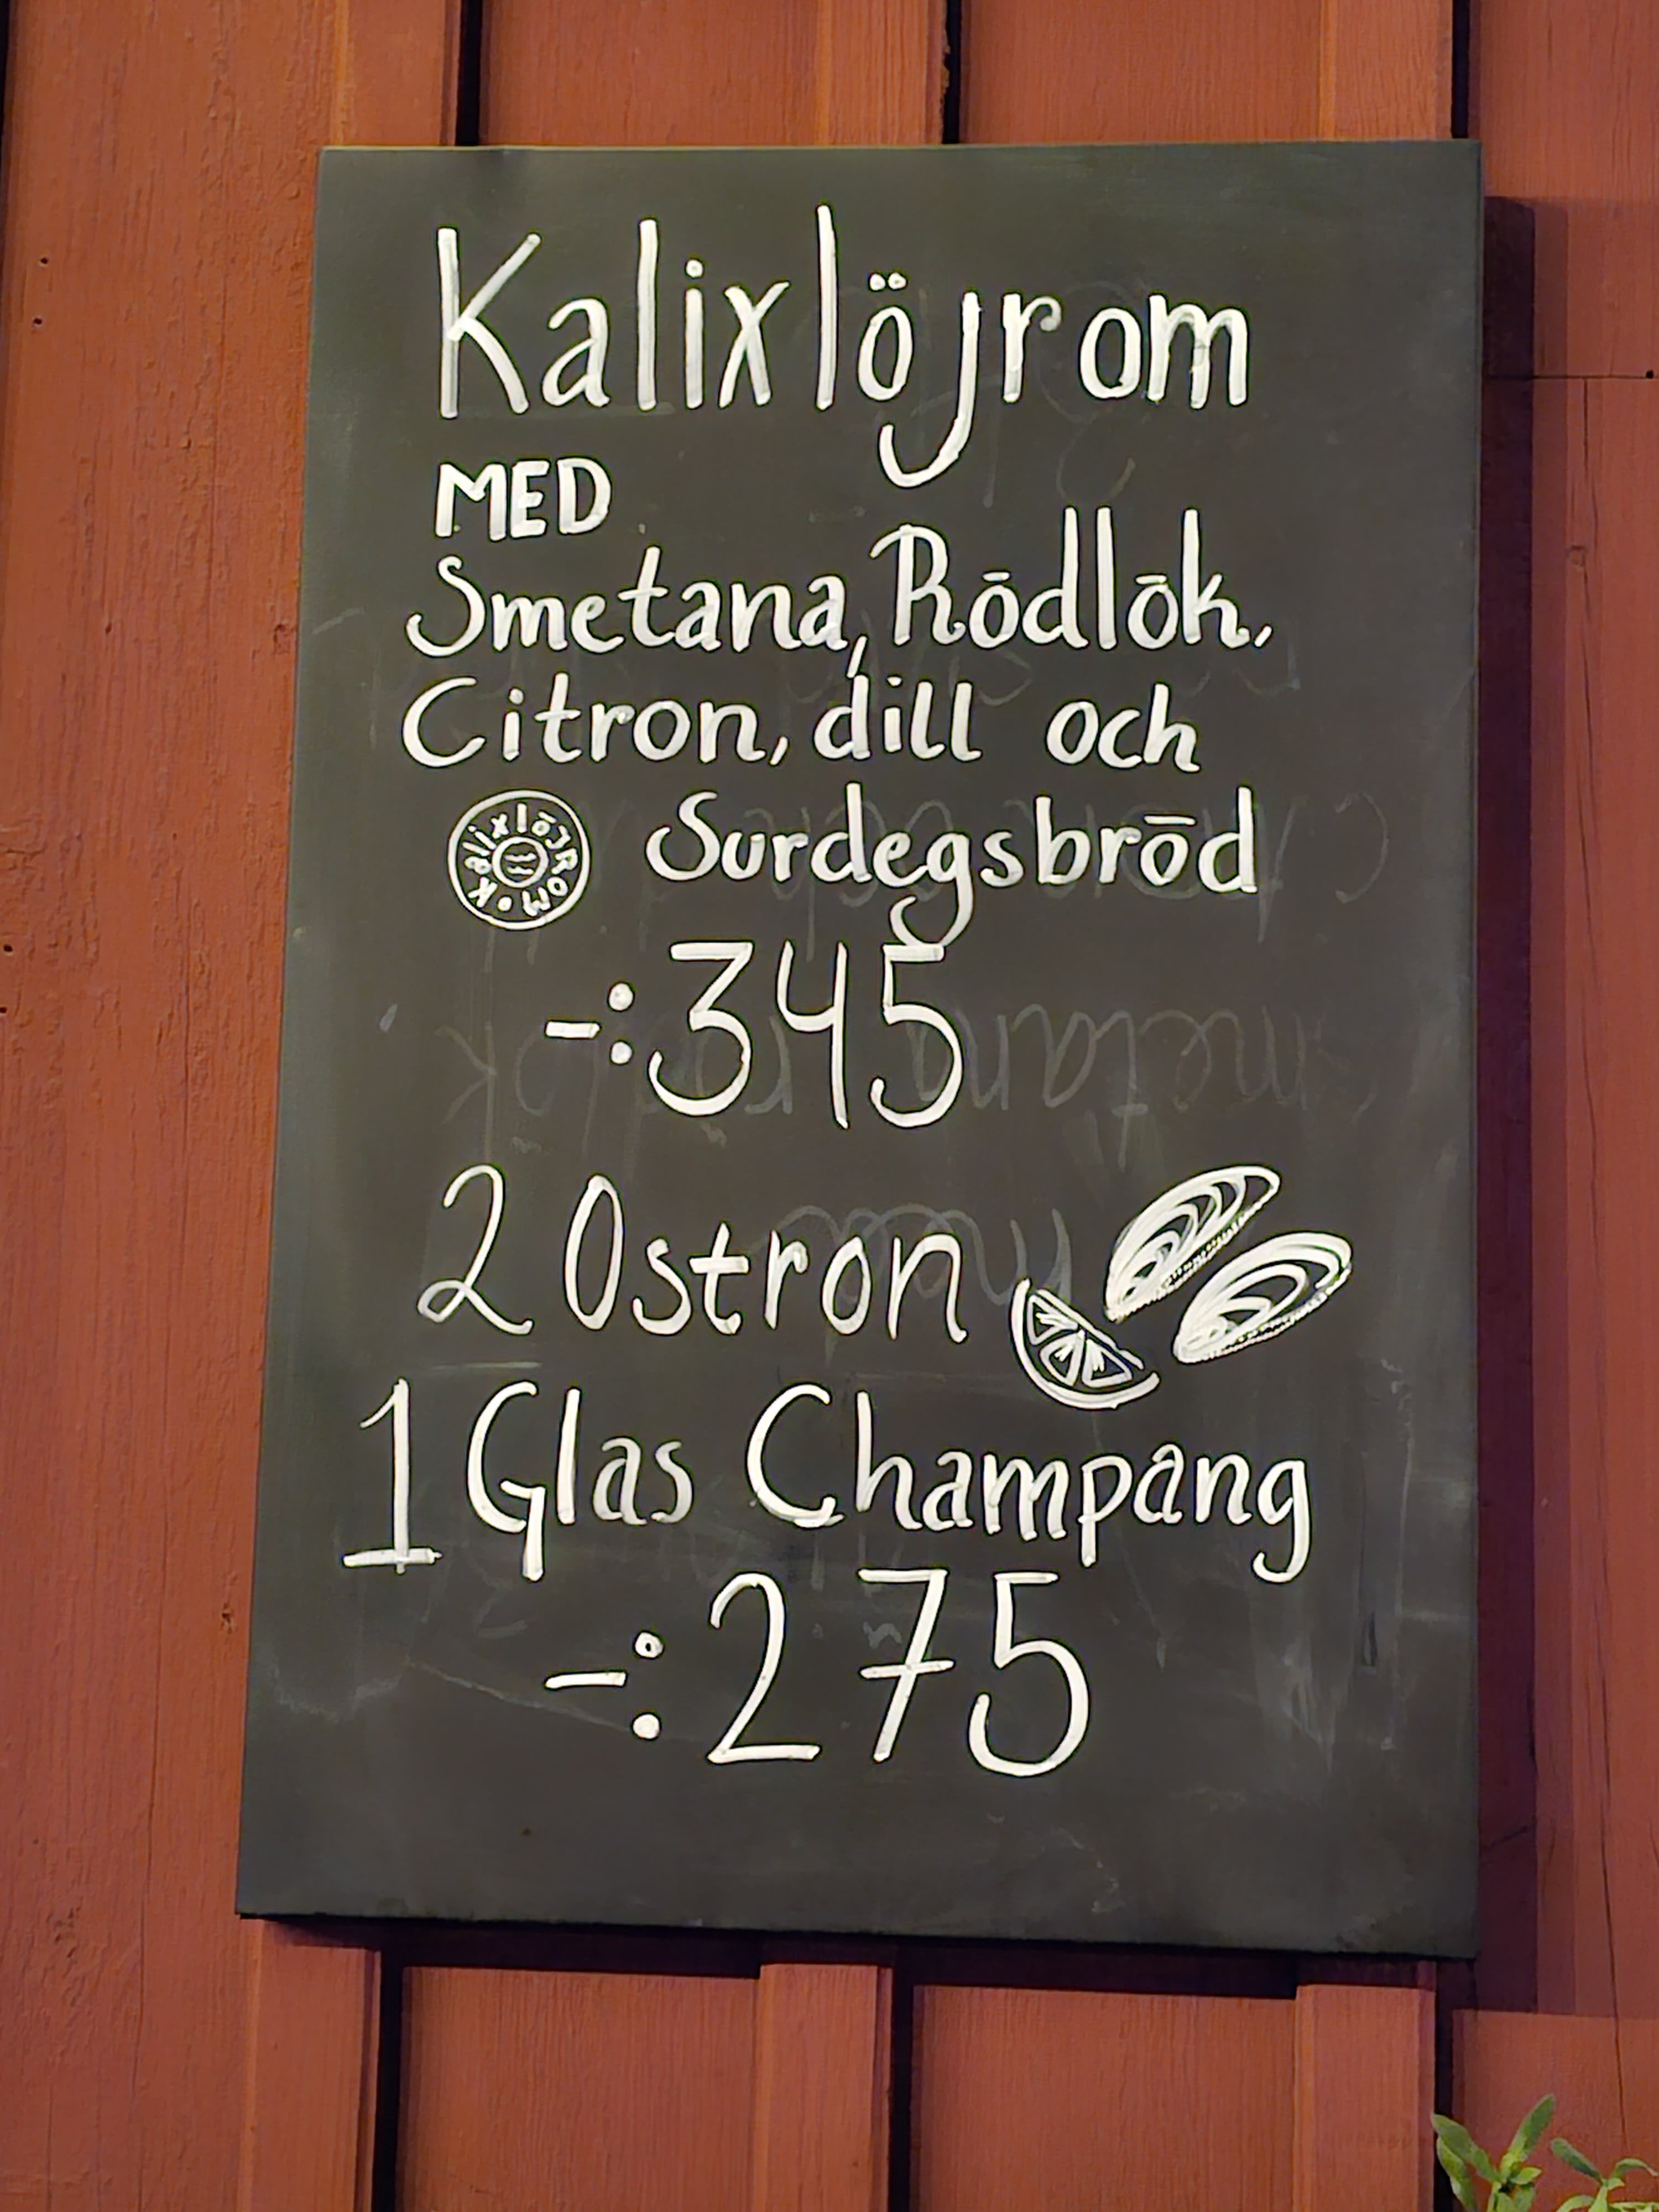 Kalixlöjrom
MED
Smetana, Rōdlōk,
Citron, dill och
Kalixlöjrom •
Surdegsbrōd
-:345
2 Ostron
1 Glas Champang
-:275